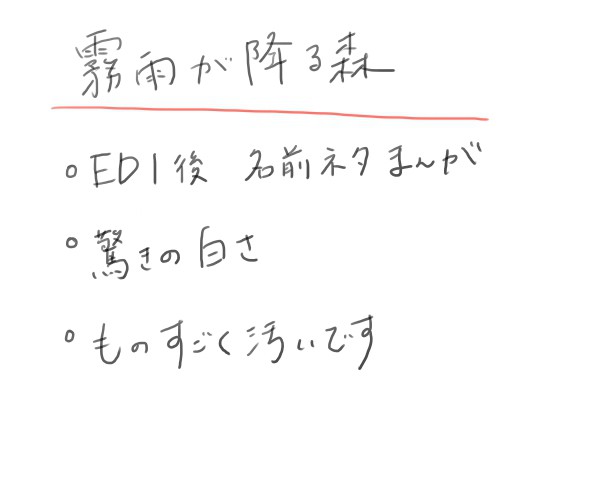 霧雨が降る森
○ED1後 名前ネタまんが
○驚きの白さ
○ものすごく汚いです